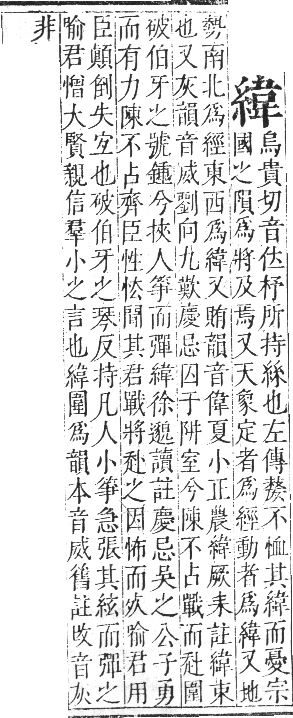 緯
烏貴切音位杼所持絲也左傳嫠不恤其緯而憂宗
國之隕爲將及焉又天象定者爲經動者爲緯又地
勢南北爲經東西爲緯又賄韻音偉夏小正農緯厥耒註緯束
也又灰韻音威劉向九歎慶忌囚于阱室兮陳不占戰而赴圍
破伯牙之號鍾兮挾人箏而彈緯徐邈讀註慶忌吳之公子勇
而有力陳不占齊臣性怯聞其君戰將赴之因怖而死喻君用
臣顛倒失宜也破伯牙之琴反持凡人小箏急張其絃而彈之
喻君憎大賢親信羣小之言也緯圍爲韻本音威舊註改音灰
非